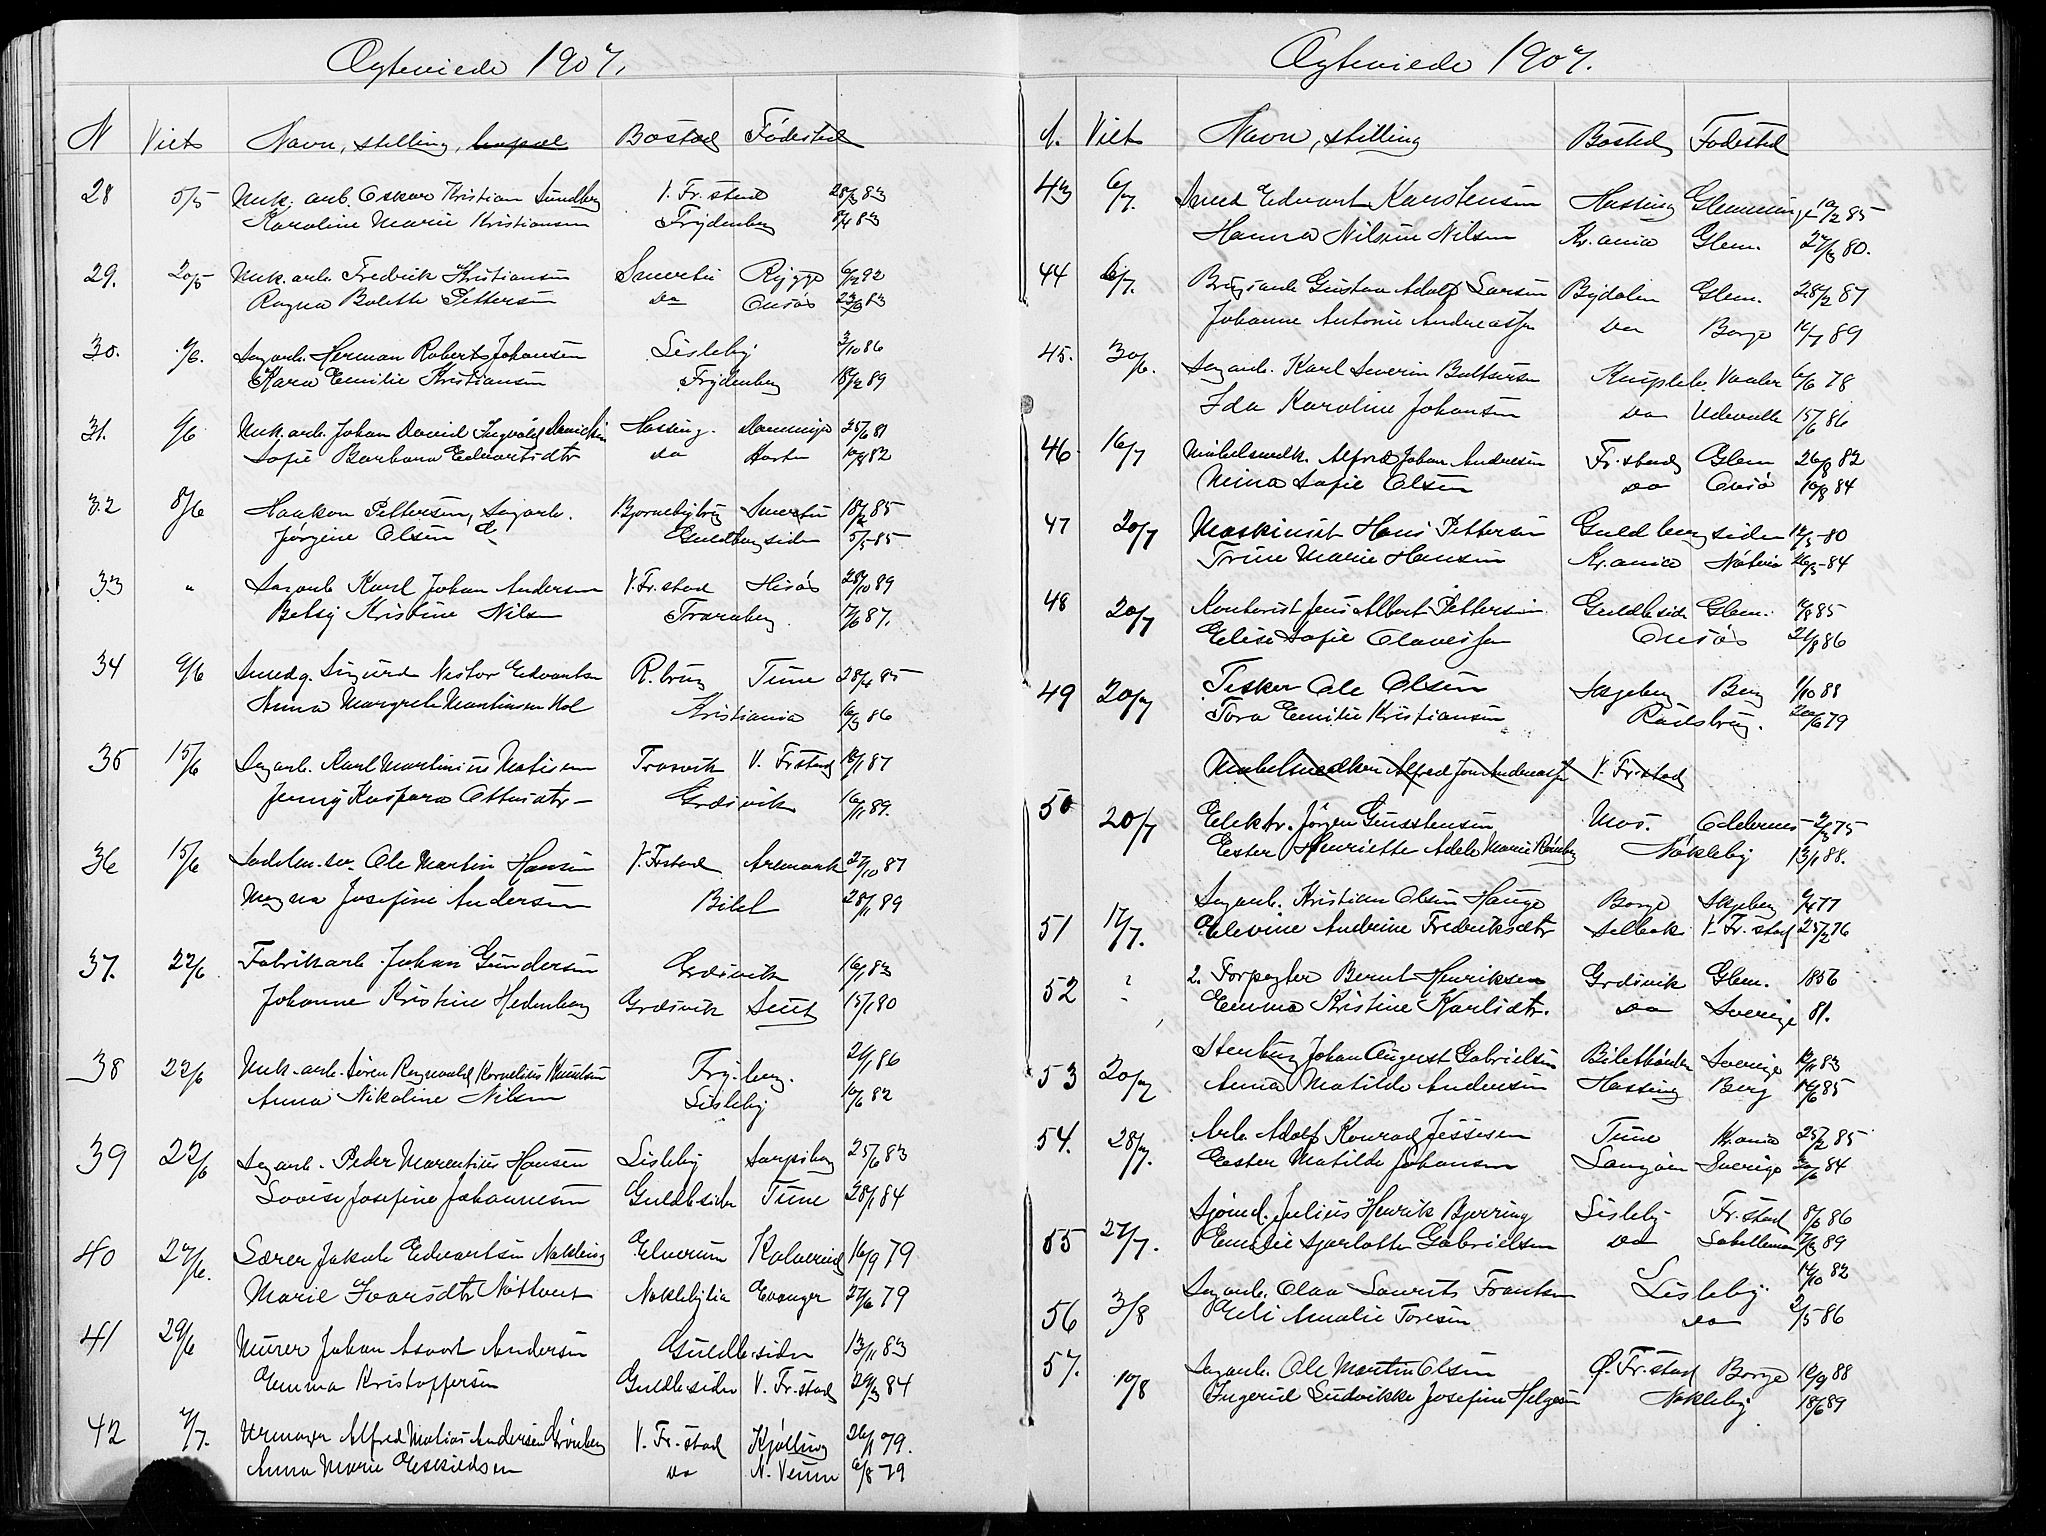 Ægteviede 1907.
N Viet Navn, stilling, Bosted Fødested
28 5/5 Murk. arb. Oskar Kristian Sundberg V. Fr.stad 28/3 83
Karoline Marie Kristiansen Frydenberg 8/4 83
29. 20/5 Murk. arb. Fredrik Kristiansen Smertu Rygge 92
Ragna Bolette Pettersen do Onsøs 23/9 83
30. 9/6. Sagarb. Herman Roberts Johansen Lisleby 3/10 86
Kara Emilie Kristiansen Frydenberg 18/12 89
31. 9/6 Murk. arb. Johan David Ingvald Hassing. 25/6 81
Sofie Barbara Edvartsdtr do 10/8 82
32 8/6 Haakon Pettersen, Sagarb. Bjørnebybrug Smertu 18/2 85
Jørgine Olsen Guldbergsiden 5/5-85
33 " Sagarb Karl Johan Andersen V. Fr.stad Hisøs 28/10 89
Betsy Kristine Nilsen Traraberg. 7/6 87.
34 9/6 Smedg. Sigurd Nistor Edvartsen R. brug Tune 28/4 85
Anna Margrete Martinsen Hol Kristiania 16/3 86
35 15/6 Sagarb. Karl Martinius Matisen Trosvik V. Fr.stad 12/1 87
Jenny Kaspara Ottersdtr - Gresvik 16/11 89.
36 15/6 Sadelm. sv. Ole Martin Hansen V. Fr.stad Aremark 27/10 87
Magna Josefine Andersen Bilet 28/1 89
37. 22/6 Fabrikarb. Johan Gundersen Gresvik 16/1 83
Johanne Kristine Hedenberg Gresvik Seut 15/1 80
38 22/6 Murk. arb. Søren Ragnvald Kornelius Knutsen Fry.berg. 21/1 86
Anna Nikoline Nilsen Lisleby 10/6 82
39 22/6 Sagarb. Peder Marentius Hansen Lisleby Sarpsborg 25/6 83
Lovise Josefine Johannesen Guldb.siden Tune 28/1 84
40 27/6. Lærer Jakob Edvartsen Nokleby Elverum Kolvereid 16/9 79
Marie Ivarsdtr Nøttveit Nokleby lia Evanger 27/6 79
41 29/6 Murer Johan Asvort Andersen Guldb.siden 13/11 83
Emma Kristoffersen Guldb.siden V. Fr.stad 29/3 84
42 7/7. Urmager Alfred Matias Andersen Grønberg V. Fr.stad Kjølberg 26/1 79.
Anna Marie Eskildsen do N. Veum 6/8 79
Ægteviede 1907.
N. Viet Navn, stilling Bosted Fødested
43 6/7. Smed Edvart Karstensen Hassing Glemminge 10/2 85
Hanna Nilsine Nilsen Kr.ania Glem. 27/8 80.
44 6/7. Brugsarb Gustav Adolf Larsen Bydalen Glem. 28/2 87
Johanne Antonie Andreassen do Borge 10/7 89
45. 30/6. Sagarb. Karl Severin Baltsersen Vaaler 6/6 78
Ida Karoline Johansen do Udevalle 15/6 86
46 16/7 Møbelsnedk. Alfred Johan Andresen Fr.stad Glem 26/8 82
Mina Sofie Olsen do Onsø 10/8 84
47 20/7 Maskinist Hans Pettersen Guldbergsiden 12/5-80
Trine Marie Hansen Kr.ania Nøterø 26/5-84
48 20/7 Kontorist Jens Albert Pettersen Guldb.side Glem. 9/8 85
Elise Sofie Olavesen Onsøs 21/8 86
49 20/7 Fisker Ole Olsen Sageberg Berg 1/10 88
Tora Emilie Kristiansen Raadsbrug. 20/6 79
Møbelsnedker Alfred Joh Andreassen V. Fr.stad
50 20/7 Elektr. Jørgen Gustensen Mos. Oddernes 3/3 75
Ester Henriette Adele Marie Rønberg Nøkleby 13/1 88.
51 17/7. Sagarb. Kristian Olsen Hauge Borge Sageberg 4/4 77
Elevine Andrine Fredriksdtr Selbak V. Fr.stad 25/2 76
52 " 2. Forpagter Bernt Henriksen Gresvik Glem. 1856
Emma Kristine Karlsdtr. do Sverige 81.
53 20/7 Stenhug Johan August Gabrielsen Biletbønder Sverige 12/11 83
Anna Matilde Andersen Hassing Berg 14/6 85
54. 28/7. Arb. Adolf Konrad Jessesen Tune Kr.ania 25/2 85
Ester Matilde Johansen Sverige 30/6 84
55 27/7. Sjømd. Julius Henrik Bjerring Lisleby Fr.stad 8/6 86
Emilie Sjarlotte Gabrielsen do 17/3 89
56 3/8 Sagarb. Olav Laurits Frantsen Lisleby. 14/10 82
Erli Amalie Toresen do 2/5 86
57. 10/8 Sagarb. Ole Martin Olsen Ø. Fr.stad Borge 12/9 88
Ingerid Ludvikke Josefine Helgesen Nøkleby 18/6 89